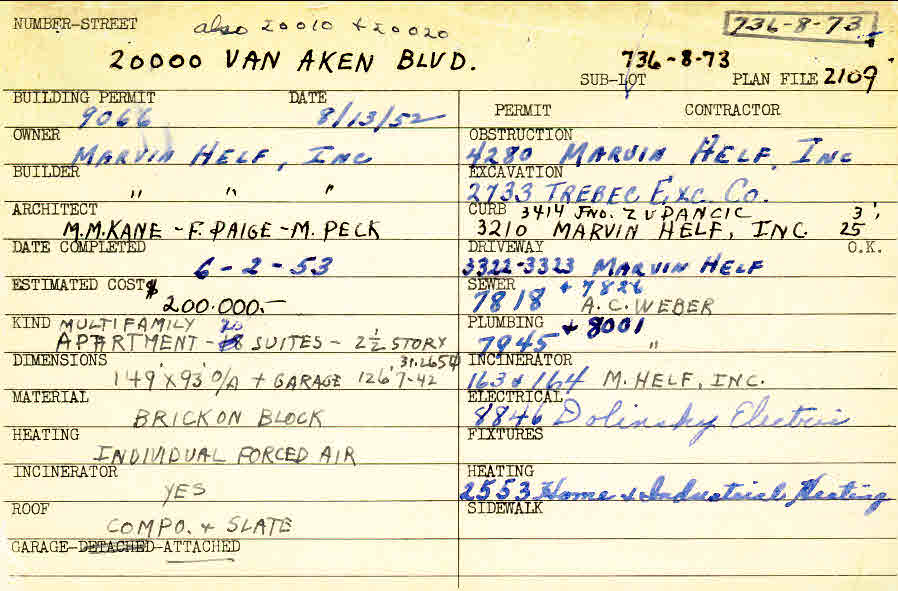 NUMBER-STREET also 20010 & 20020 736-8-73
20000 VAN AKEN BLVD. 736-8-73
SUB-LOT PLAN FILE 2109
BUILDING PERMIT DATE
9066 8/13/52
OWNER
MARVIN HELF, INC
BUILDER
" " "
ARCHITECT
M.M.KANE - F. PAIGE - M. PECK
DATE COMPLETED
6-2-53
ESTIMATED COST $
200.000.-
KIND MULTIFAMILY 20
APARTMENT - 18 SUITES - 2 1/2 STORY
DIMENSIONS 31.265#
149' X 93' O/A + GARAGE 126' 7-42
MATERIAL
BRICK ON BLOCK
HEATING
INDIVIDUAL FORCED AIR
INCINERATOR
YES
ROOF
COMPO. & SLATE
GARAGE-DETACHED-ATTACHED
PERMIT CONTRACTOR
OBSTRUCTION
4280 MARVIN HELF, INC
EXCAVATION
2733 TREBEC EXC. CO.
CURB 3414 JNO. ZUPANCIC 3',
3210 MARVIN HELF, INC. 25
DRIVEWAY O.K.
3322-3323 MARVIN HELF
SEWER & 7826
7818 A.C. WEBER
PLUMBING & 8001
7945 "
INCINERATOR
163 & 164 M. HELF, INC.
ELECTRICAL
8846 Dolinsky Electric
FIXTURES
HEATING
2553 Home & Industrial Heating
SIDEWALK